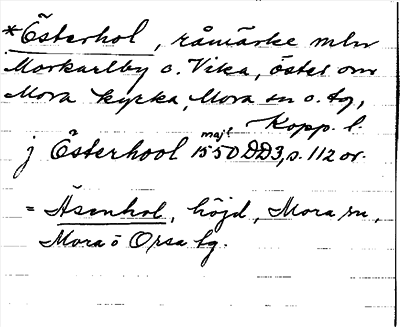 *Österhol, råmärke mln
Morkarlby o. Vika, öster om
Mora kyrka, Mora sn o. tg,
Kopp. l.
j Österhool 15 maj! 1550 DD3, s. 112 or.
= Åsenhol, höjd, Mora sn,
Mora o Orsa tg.